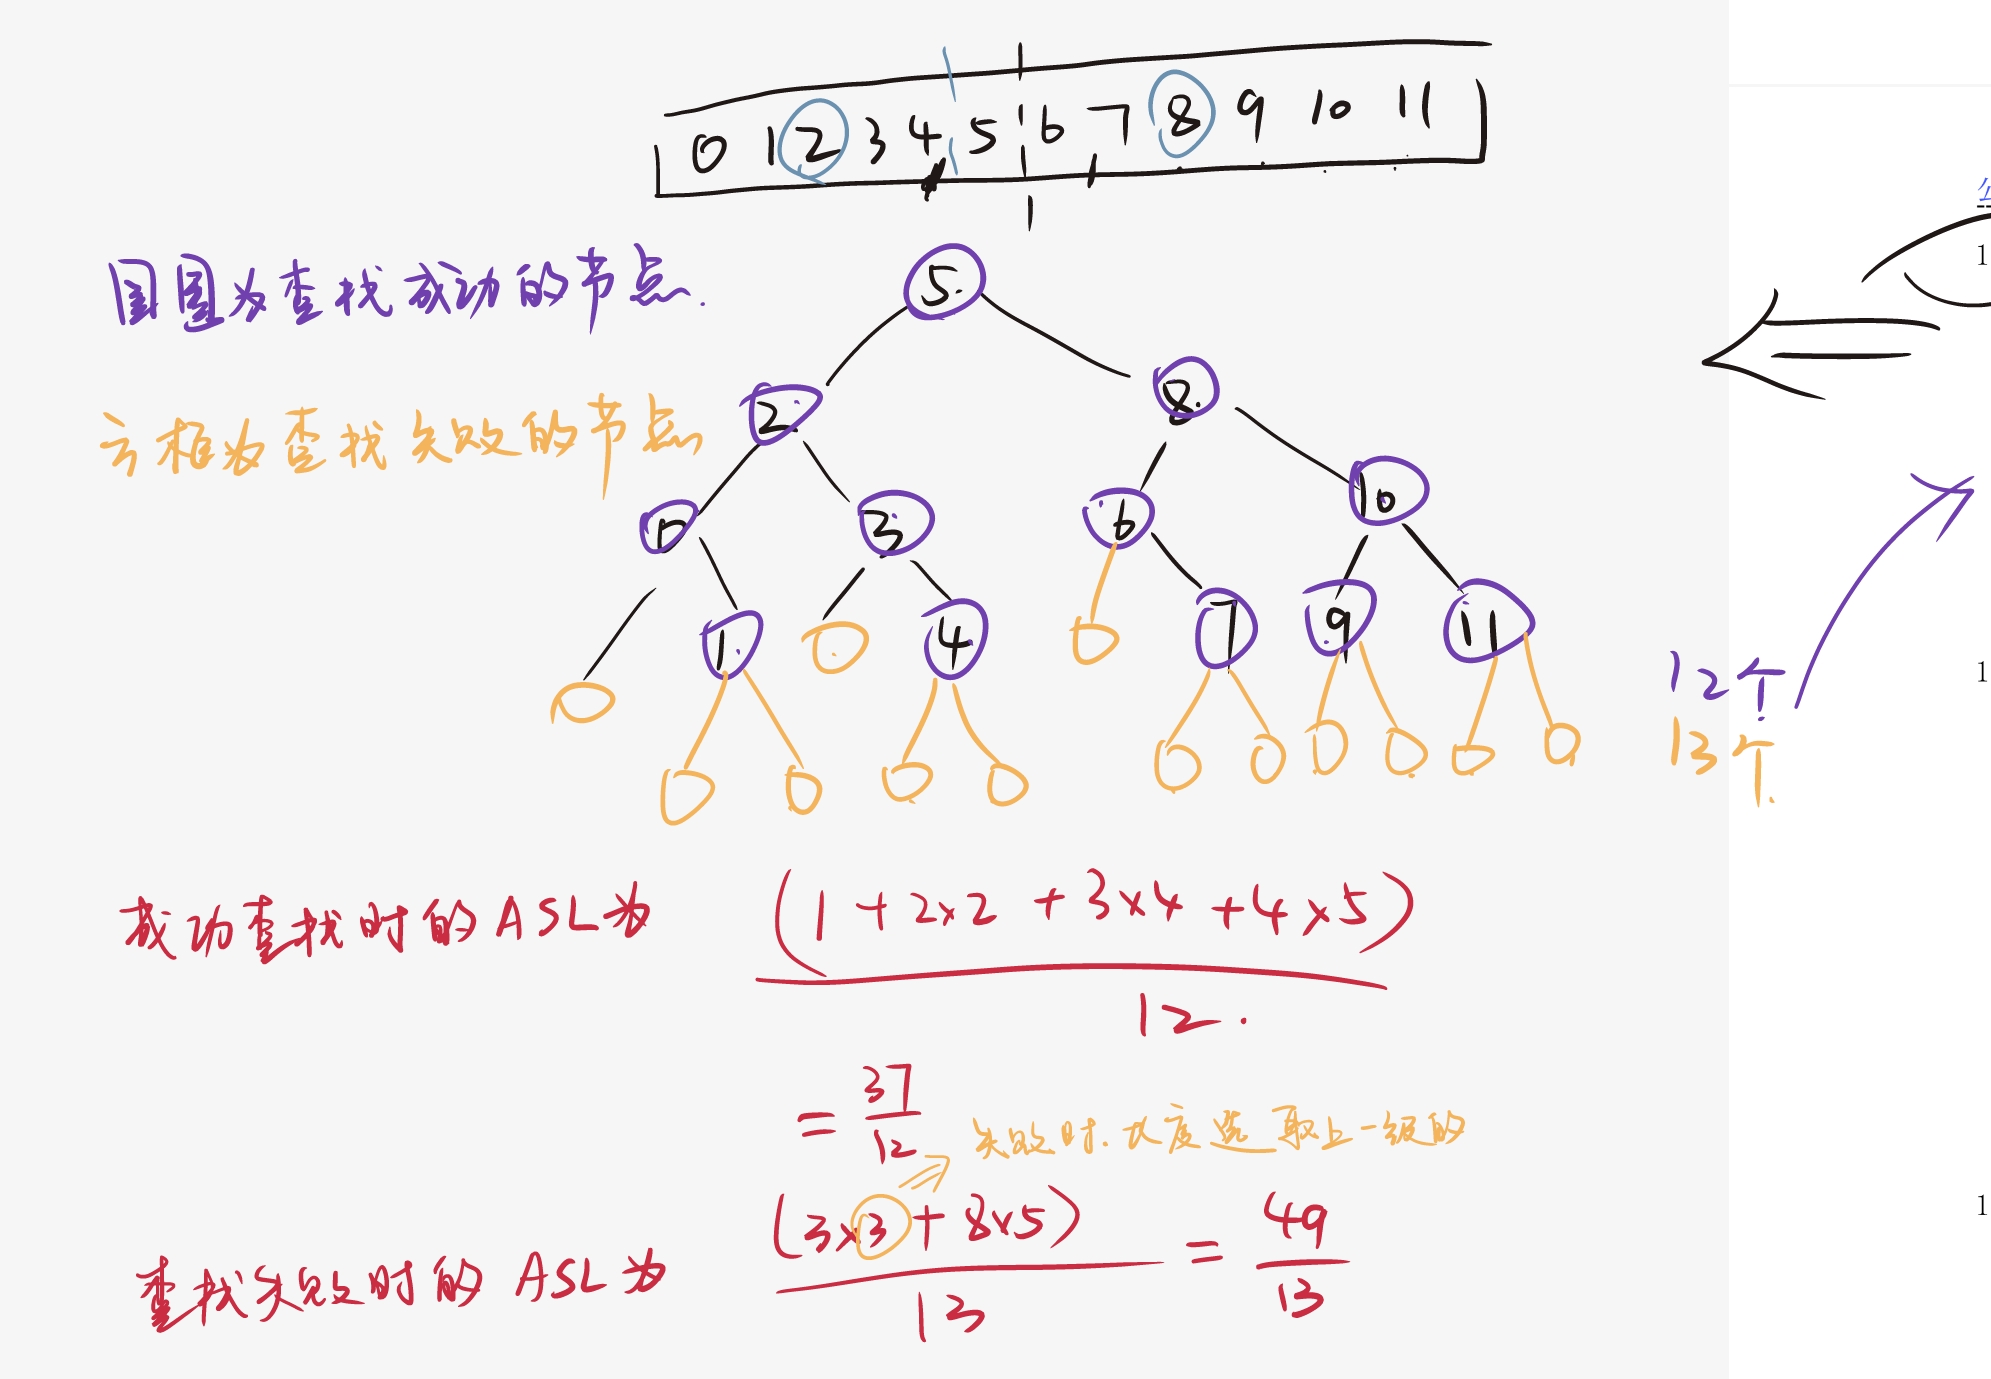 0 1 2 3 4 5 6 7 8 9 10 11
圆圈为查找成功的节点.
5
2 8
方框为查找失败的节点
0 3 6 10
1 4 7 9 11
12个
13个
成功查找时的ASL为 (1+2×2+3×4+4×5)
12.
= 37
12
失败时.长度选取上一级的
查找失败时的 ASL为 (3×3+8×5) = 49
13 13
1
1
1